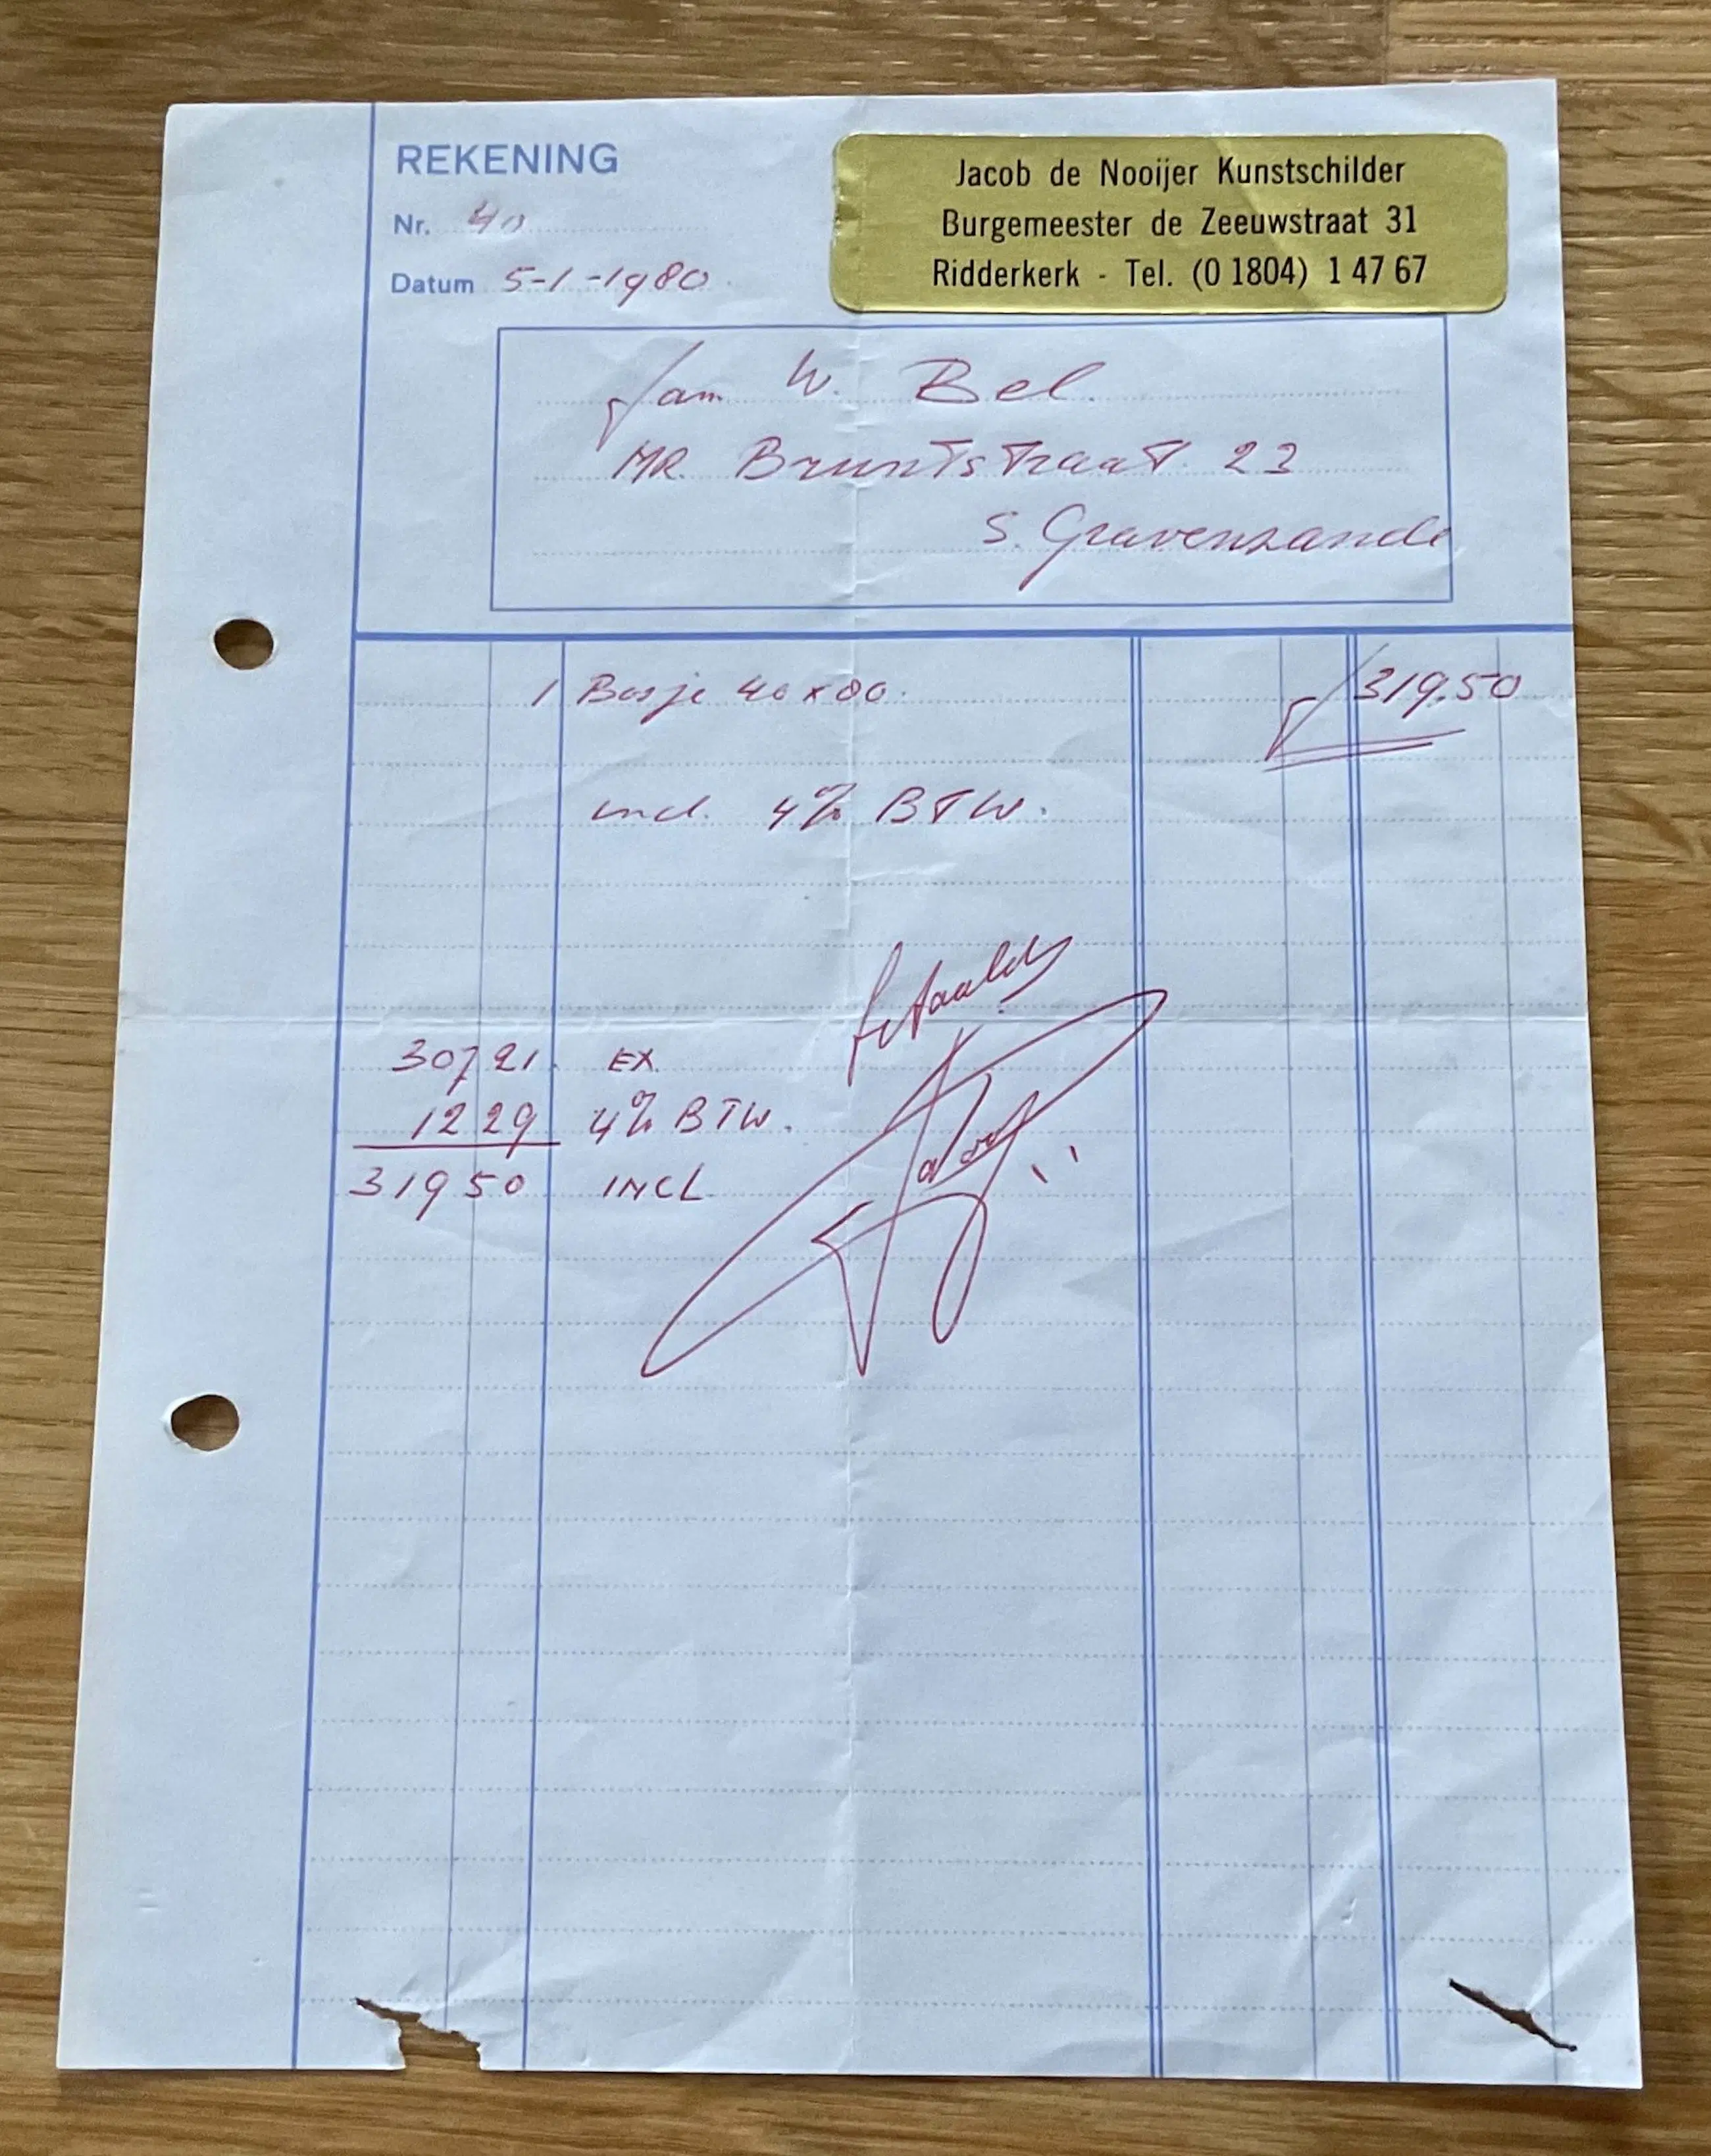 REKENING
Nr. 40
Datum 5-1-1980
Jacob de Nooijer Kunstschilder
Burgemeester de Zeeuwstraat 31
Ridderkerk - Tel. (0 1804) 1 47 67
Fam W. Bel.
MR. Bruntstraat 23
S. Gravenzande
1 Bosje 40 x 80. 319.50
incl. 4% BTW.
betaald
307 21 EX.
12 29 4% BTW.
319 50 INCL